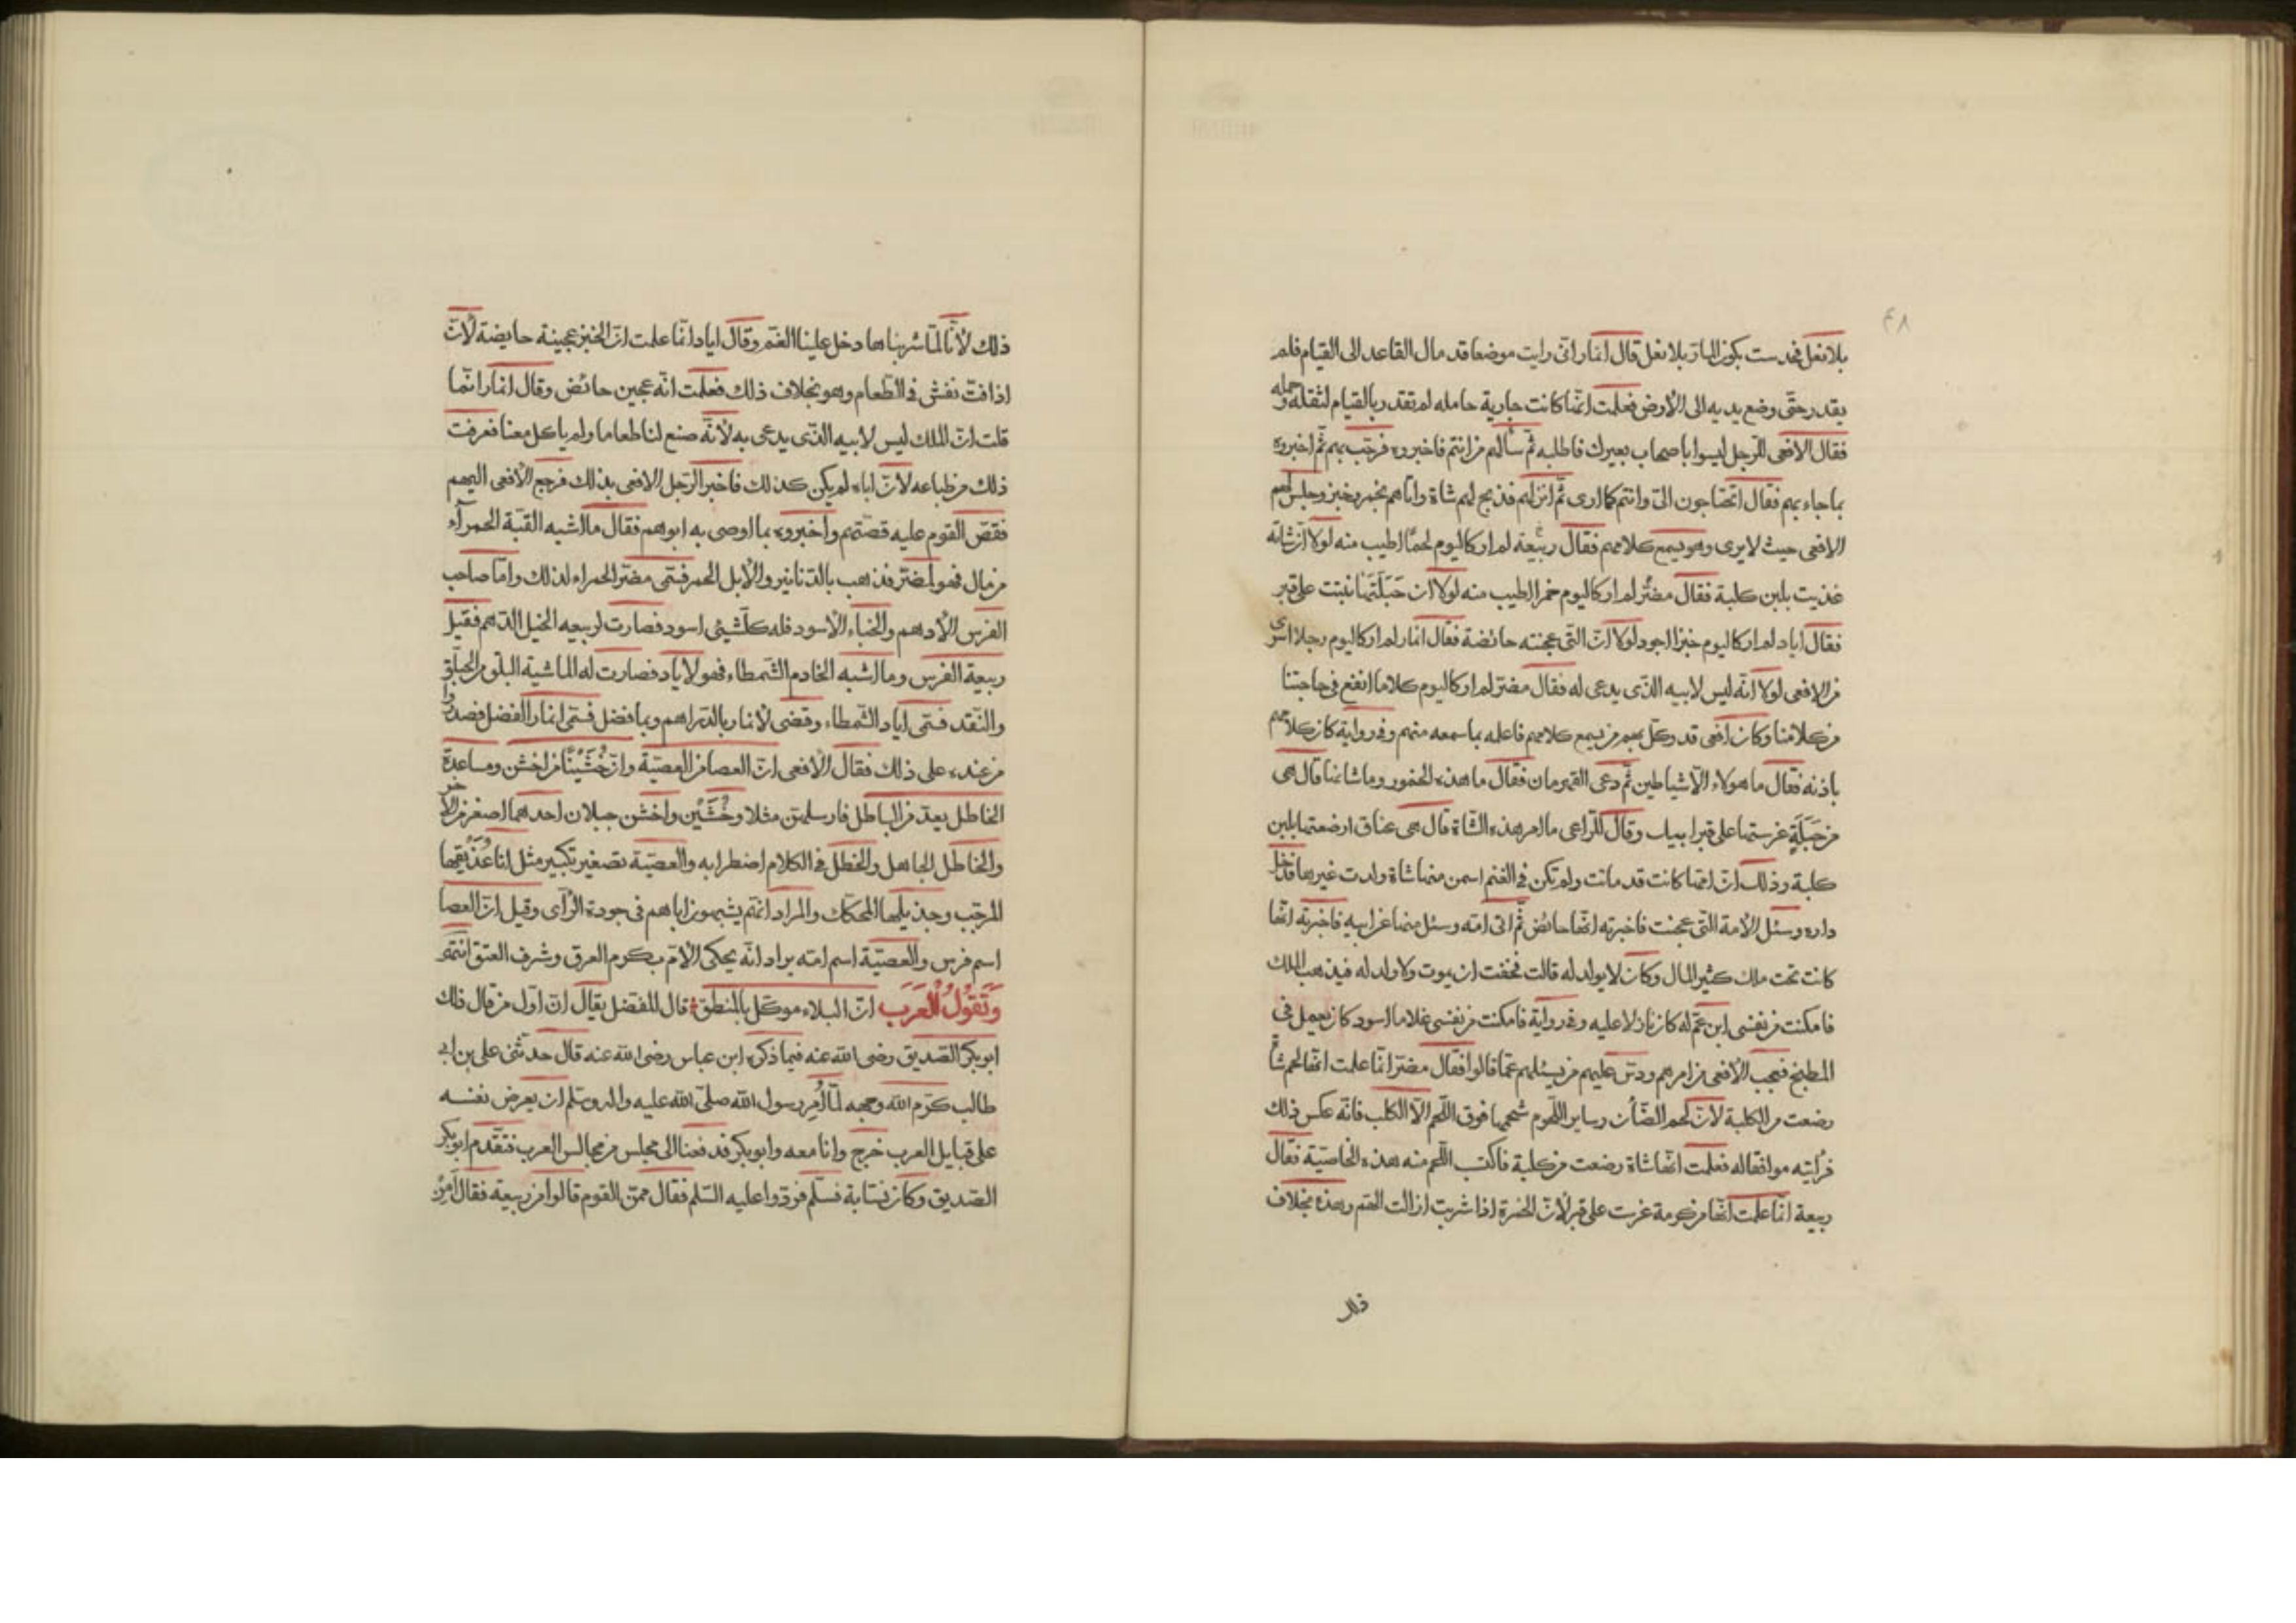 ٤٨
بلا نعل فحدست بكون الباقى بلا نعل قال انمار انى رايت موضعا قد مال القاعد الى القيام فلم
يقدر حتّى وضع يديه الى الأرض فعلمت انّها كانت جارية حامله لم تقدر بالقيام لثقله وحمله
فقال الافعى للرجل ليسوا باصحاب بعيرك فاطلبه ثم سألهم من انتم فاخبروه فرحّب بهم ثمّ اخبروه
بما جاء بهم فقال اتحتاجون الىّ وانتم كما ارى ثمّ انزلهم فذبح لهم شاة واتاهم بخمر وخبز وجلس لهم
الافعى حيث لا يرى وهو يسمع كلامهم فقال ربيعة لم ار كاليوم لحمًا اطيب منه لولا انّ شاته
غذيت بلبن كلبة فقال مضر لم ار كاليوم خمرا اطيب منه لولا ان حَبَلَتَها نبتت على قبر
فقال اياد لم ار كاليوم خبزا اجود لولا انّ التّى عجنته حائضة فقال انمار لم ار كاليوم رجلا اسرى
من الافعى لولا انّه ليس لابيه الذّى يدعى له فقال مضر لم ار كاليوم كلاما انفع فى حاجتنا
من كلامنا وكان افعى قد وكّل بهم من يسمع كلامهم فاعلمه بما سمعه منهم وفى رواية كان كلامهم
باذنه فقال ما هولاء الّا شياطين ثمّ دعى القهرمان فقال ما هذه الخمور وما شانها قال هى
من حَبَلَةٍ غرستها على قبر ابيك وقال للرّاعى ما امر هذه الشاة قال هى عناق ارضعتها بلبن
كلبة وذلك انّ امّها كانت قد ماتت ولم تكن فى الغنم اسمن منها شاة ولدت غيرها فدخل
داره وسئل الأمة التّى عجنت فاخبرته انّها حائض ثمّ اتى امّه وسئل منها عن ابيه فاخبرته انّها
كانت تحت ملك كثير المال وكان لا يولد له قالت فخفت ان يموت ولا ولد له فيذهب الملك
فامكنت من نفسى ابن عمّ له كان نازلا عليه وفى رواية فامكنت من نفسى غلاما اسود كان يعمل فى
المطبخ فعجب الأفعى من امرهم ودسّ عليهم من يسئلهم عمّا قالوا فقال مضر انّما علمت انّها لحم شاة
رضعت من الكلبة لانّ لحم الضّأن وساير اللّحوم شحمها فوق اللّحم الّا الكلب فانّه عكس ذلك
فرأيته موافقا له فعلمت انّها شاة رضعت من كلبة فاكتسب اللّحم منه هذه الخاصيّة فقال
ربيعة انّما علمت انّها من كرمة غرست على قبر لأنّ الخمرة اذا شربت ازالت الهمّ وهذه بخلاف
ذلك لأنّا لمّا شربناها دخل علينا الغمّ وقال اياد انّما علمت انّ الخبز عجينة حايضة لأنّ
اذا فتّ نفش فى الطّعام وهو بخلاف ذلك فعلمت انّه عجين حائض وقال انمار انّما
قلت انّ الملك ليس لابيه الذّى يدعى به لأنّه صنع لنا طعاما ولم ياكل معنا فعرفت
ذلك من طباعه لأنّ اباه لم يكن كذلك فاخبر الرّجل الافعى بذلك فرجع الأفعى اليهم
فقصّ القوم عليه قصّتهم واخبروه بما اوصى به ابوهم فقال ما اشبه القبّة الحمرآء
من مال فهو لمضر فذهب بالدّنانير والأبل الحمر فسّمى مضر الحمراء لذلك وامّا صاحب
الفرس الأدهم والخباء الأسود فله كلّ شيئ اسود فصارت لربيعه الخيل الدّهم فقيل
ربيعة الفرس وما اشبه الخادم الشّمطاء فهو لأياد فصارت له الماشية البلق من الحبلّق
والنّقد فسّمى اياد الشّمطاء وقضى لأنمار بالدّراهم وبما فضل فسّمى انمار الفضل فصدروا
من عنده على ذلك فقال الأفعى انّ العصا من العصيّة وانّ خُشَيْنًا من اخشن ومساعدة
الخاطل يعدّ من الباطل فارسلهنّ مثلا وخُشَيْن واخشن جبلان احدهما اصغر من الآخر
والخاطل الجاهل والخطل فى الكلام اضطرابه والعصيّة تصغير تكبير مثل انا عُذَيْقها
المرجّب وجذيلها المحكّك والمراد انّهم يشبهون اباهم فى جودة الرّأى وقيل انّ العصا
اسم فرس والعصيّة اسم امّه يراد انّه يحكى الأمّ بكرم العرق وشرف العتق انتهى
وَتَقُولُ الْعَرَب انّ البلاء موكّل بالمنطق قال المفضل يقال انّ اوّل من قال ذلك
ابو بكر الصّديق رضى الله عنه فيما ذكره ابن عباس رضى الله عنه قال حدثنى على بن ابى
طالب كرّم الله وجهه لمّا اُمِر رسول الله صلّى الله عليه واله وسّلم ان يعرض نفسه
على قبايل العرب خرج وانا معه وابو بكر فدفعنا الى مجلس من مجالس العرب فتقدم ابو بكر
الصّديق وكان نسّابة فسلّم فردّوا عليه السّلم فقال ممّن القوم قالوا من ربيعة فقال أمِن